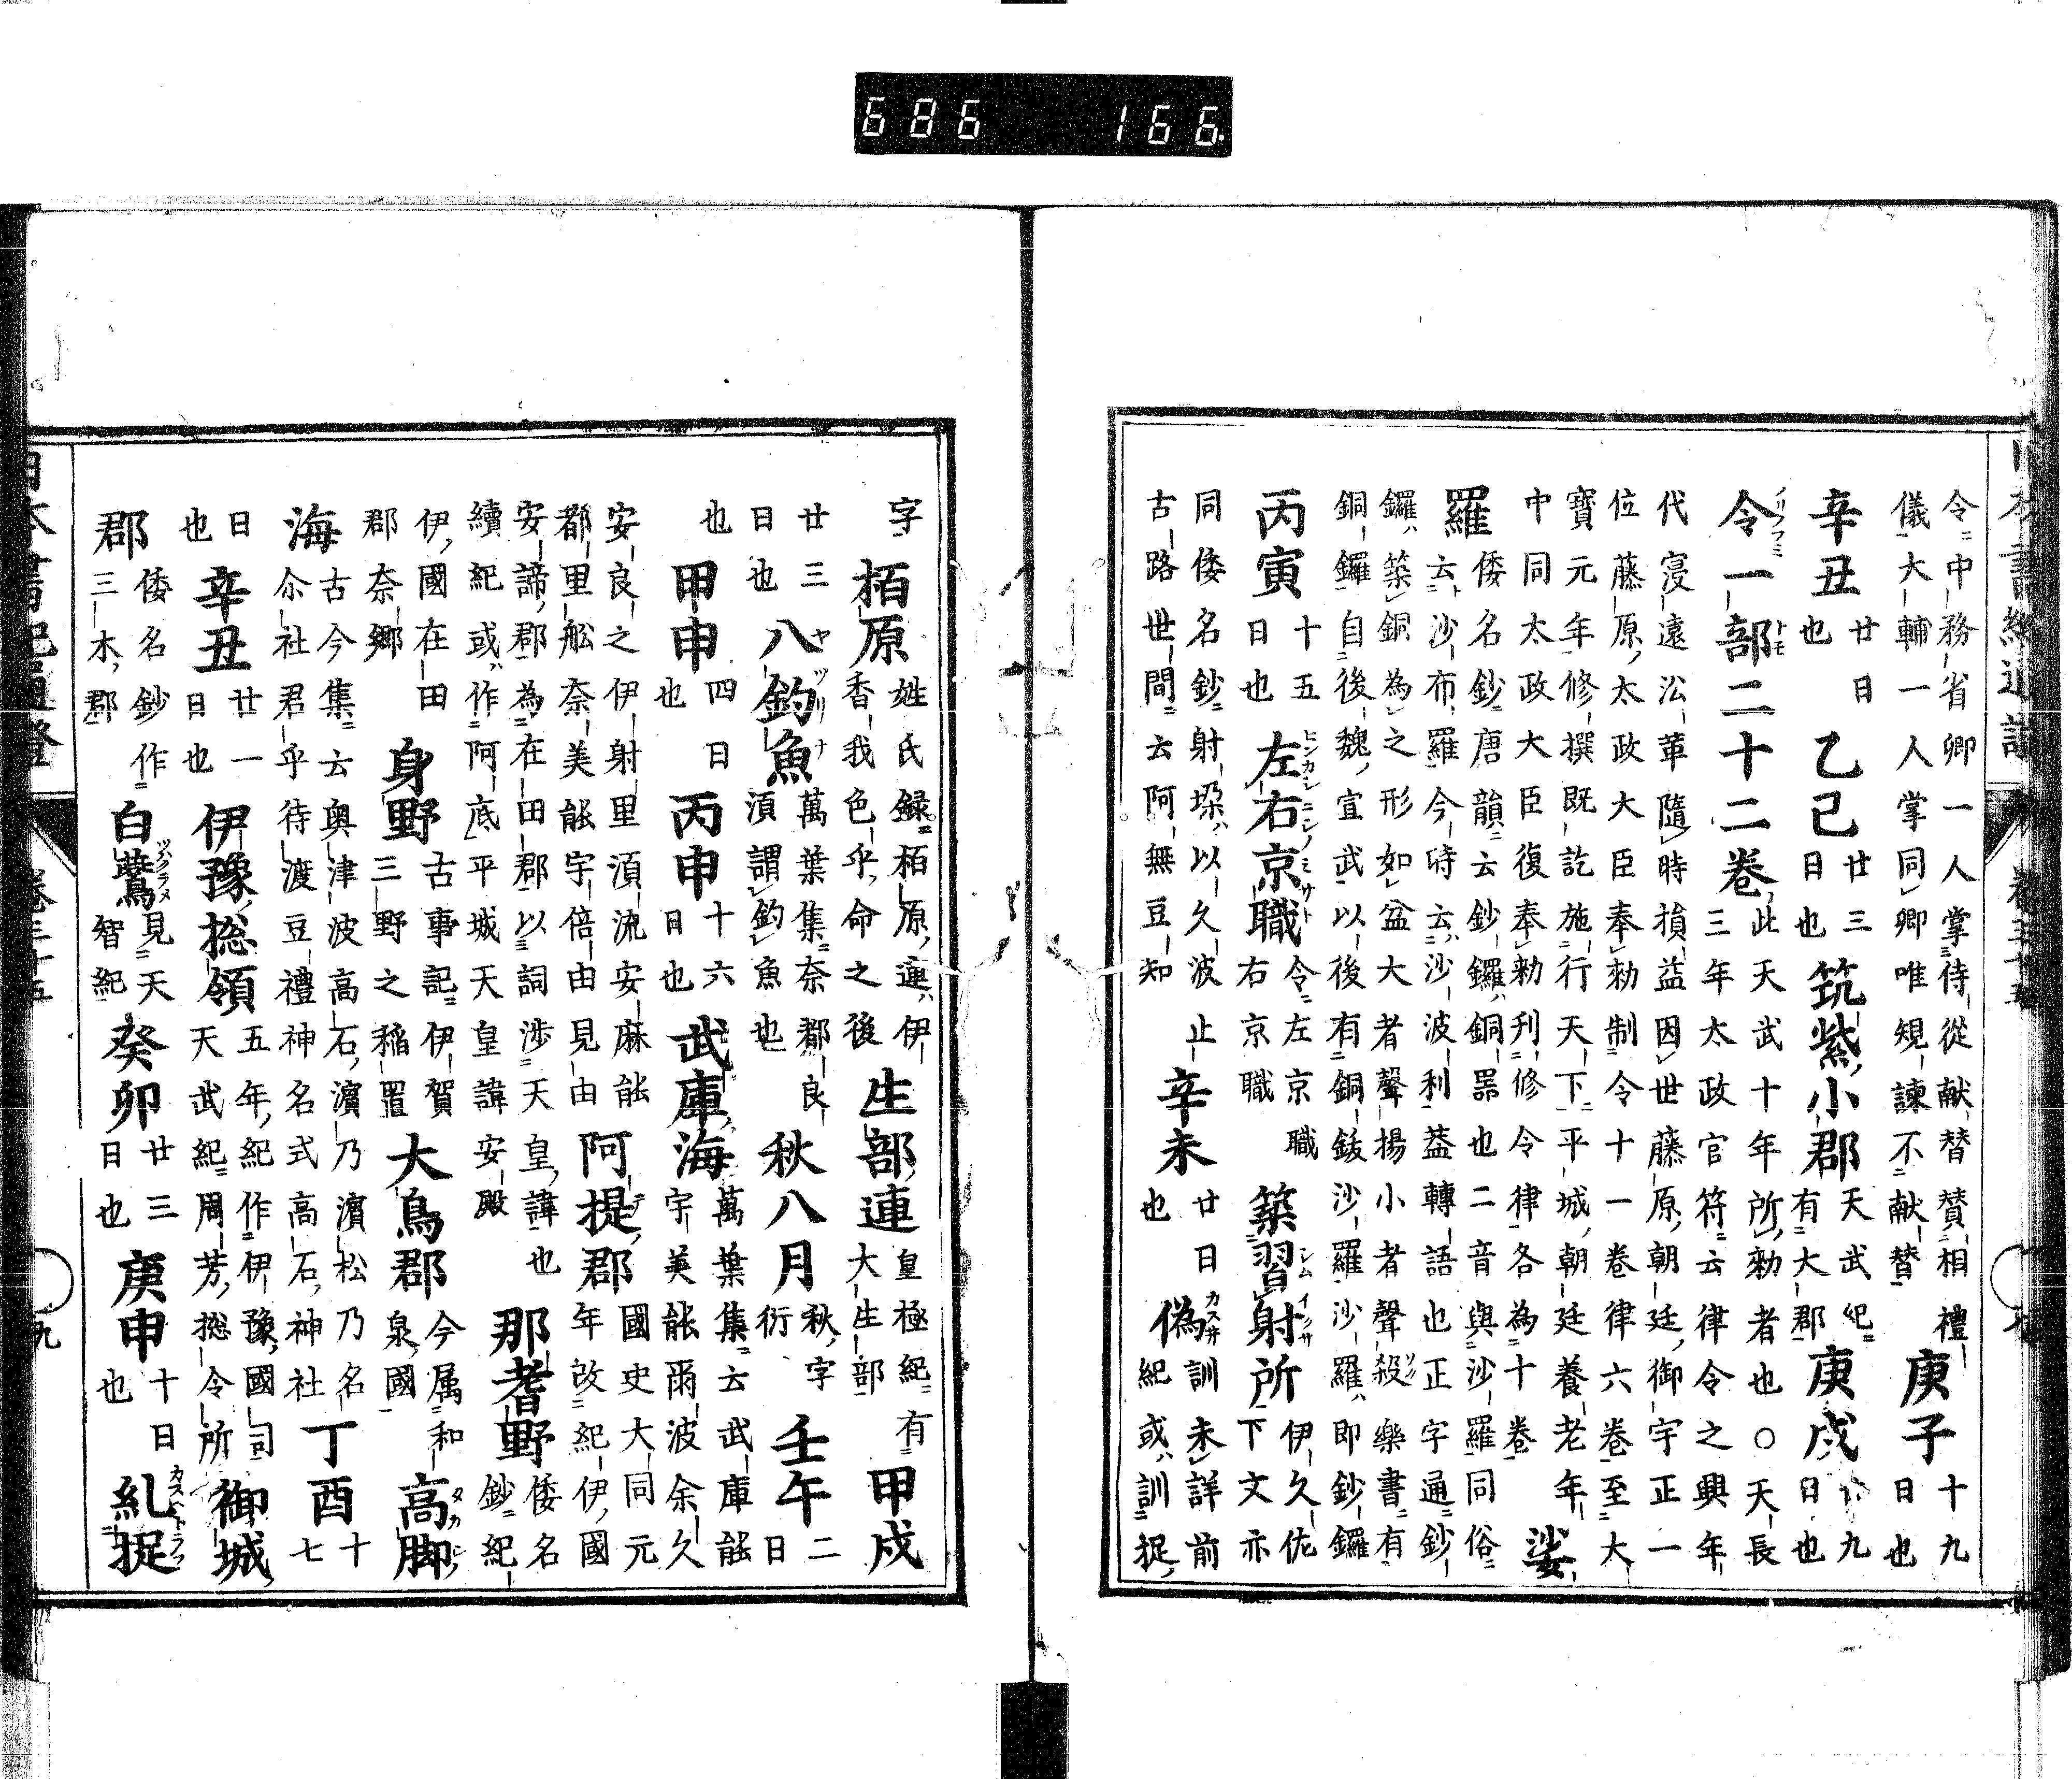 686 166
令中務省卿一人掌侍從献替賛相禮
儀大輔一人掌同卿唯規諫不献替
庚子
十九
日也
辛丑
廿日
也
乙巳
廿三
日也
筑紫小郡
天武紀
有大郡
庚戌
九
日也
令一部二十二卷
ノリノフミ
トモ
此天武十年所勅者也○天長
三年太政官符云律令之興年
代寖遠沿革隨時損益因世藤原朝廷御宇正一
位藤原太政大臣奉勅制令十一卷律六卷至大
寶元年修撰既訖施行天下平城朝廷養老年
中同太政大臣復奉勅刋修令律各為十卷
娑
羅
倭名鈔唐韻云鈔鑼銅噐也二音與沙羅同俗
云沙布羅今時云沙波利葢轉語也正字通鈔
鑼築銅為之形如盆大者聲揚小者聲殺樂書有
銅鑼自後魏宣武以後有銅鈸沙羅沙羅即鈔鑼
丙寅
十五
日也
左右京職
ヒンカシニシノミサト
令左京職
右京職
築習射所
シム
イクサ
伊久佐
下文亦
同倭名鈔射垜以久波止
辛未
廿日
也
偽
訓未詳前
紀或訓捉
古路世間云阿無豆知
字
栢原
姓氏録栢原連伊
香我色乎命之後
生部連
皇極紀有
大生部
甲戌
廿三
日也
八釣魚
ヤツリナ
萬葉集奈都良
湏謂釣魚也
秋八月
秋字
衍
壬午
二
日
也
甲申
四日
也
丙申
十六
日也
武庫海
萬葉集云武庫能
宇美能爾波余久
安良之伊射里湏流安麻能
阿提郡
國史大同元
年改紀伊國
都里舩奈美能宇倍由見由
安諦郡為在田郡以詞渉天皇諱也
那耆野
倭名
鈔紀
續紀或作阿底平城天皇諱安殿
伊國在田
郡奈郷
身野
古事記伊賀
三野之稲置
大鳥郡
今属和
泉國
高脚
タカシ
海
古今集云奥津波高石濵乃濵松乃名
尒社君乎待渡豆禮神名式高石神社
丁酉
十七
日
也
辛丑
廿一
日也
伊豫捴領
五年紀作伊豫國司
天武紀周芳捴令所
御城
郡
倭名鈔作
三木郡
白䴏
ツハクラメ
見天
智紀
癸卯
廿三
日也
庚申
十日
也
糺捉